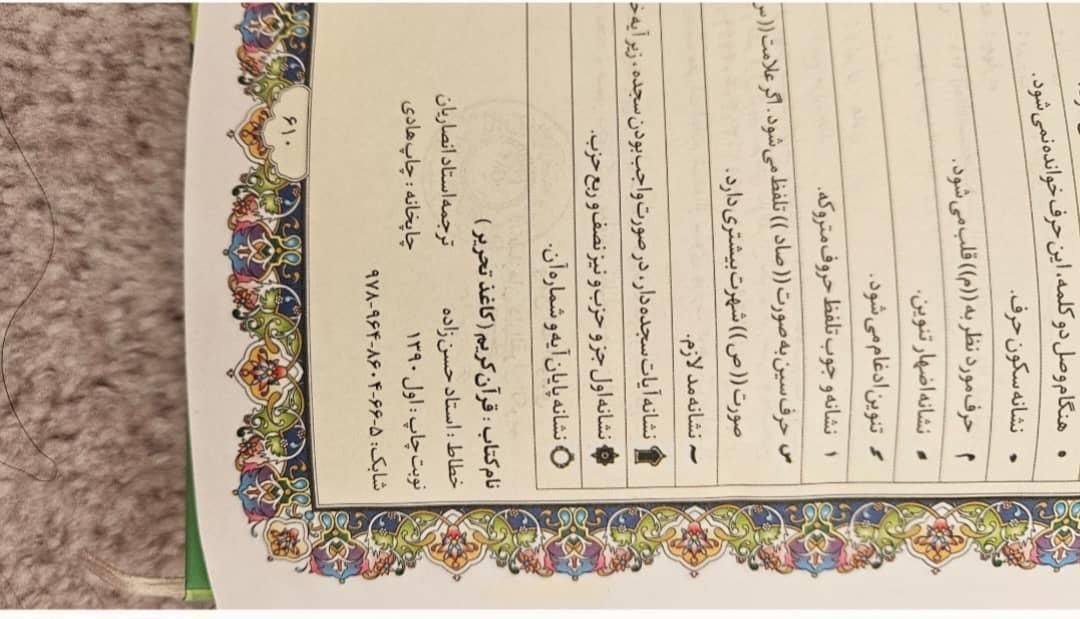 هنگام وصل دو کلمه، این حرف خوانده نمی‌شود.
نشانه سکون حرف.
م حرف مورد نظر به ((م)) قلب می‌شود.
نشانه اظهار تنوین.
تنوین ادغام می‌شود.
۱ نشانه وجوب تلفظ حروف متروکه.
س حرف سین به صورت ((صاد)) تلفظ می‌شود. اگر علامت ((س
صورت ((ص)) شهرت بیشتری دارد.
~ نشانه مد لازم.
نشانه آیات سجده‌دار، در صورت واجب بودن سجده، زیر آیه
نشانه اول جزو حزب و نیز نصف و ربع حزب.
نشانه پایان آیه و شماره آن.
نام کتاب: قرآن کریم (کاغذ تحریر)
خطاط: استاد حسن زاده ترجمه استاد انصاریان
نوبت چاپ: اول ۱۳۹۰ چاپخانه: چاپ هادی
شابک: ۵-۶۶-۸۶۰۴-۹۶۴-۹۷۸
۶۱۰